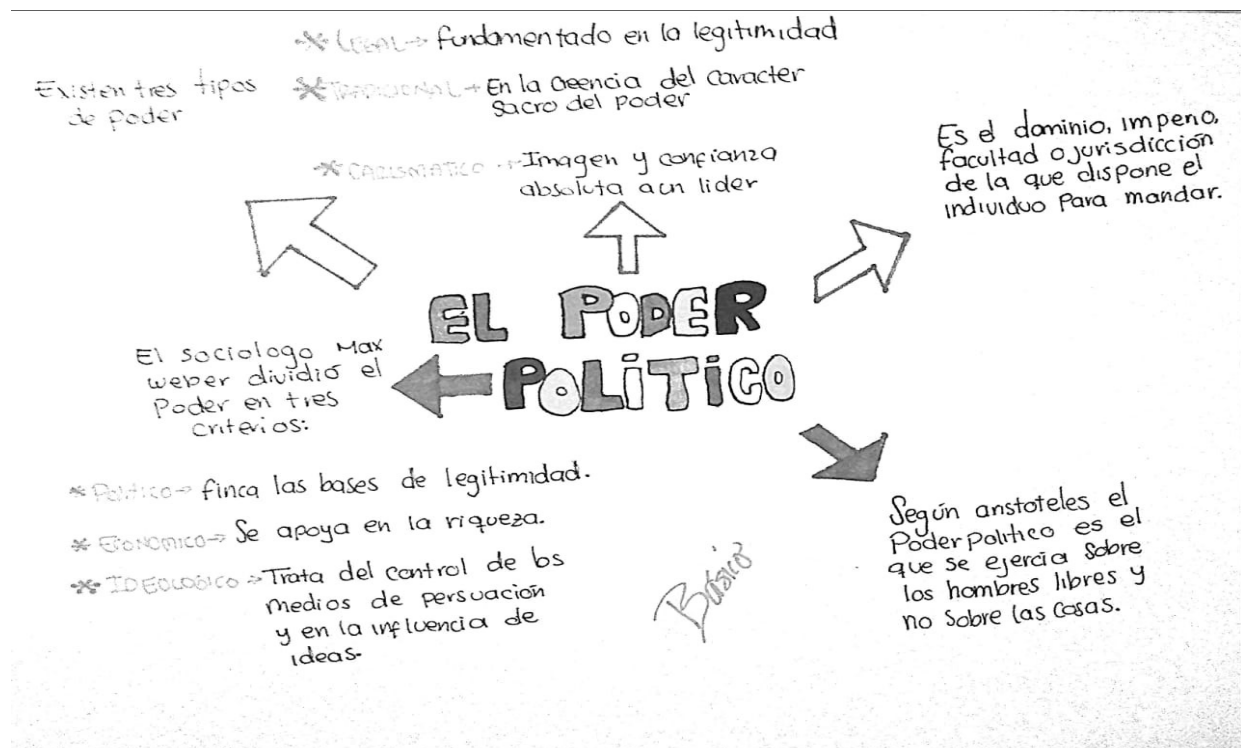 Existen tres tipos
de Poder
* LEGAL → fundamentado en la legitimidad
* TRADICIONAL → En la Creencia del caracter
Sacro del Poder
* CARISMATICO → Imagen y confianza
absoluta a un lider
Es el dominio, imperio,
facultad o jurisdicción
de la que dispone el
individuo Para mandar.
EL PODER
POLÍTICO
El sociologo Max
weber dividió el
Poder en tres
criterios:
* Político → finca las bases de legitimidad.
* ECONOMICO → Se apoya en la riqueza.
* IDEOLOGICO → Trata del control de los
medios de persuación
y en la influencia de
ideas.
Según aristoteles el
Poder político es el
que se ejercia Sobre
los hombres libres y
no Sobre las cosas.
Básico